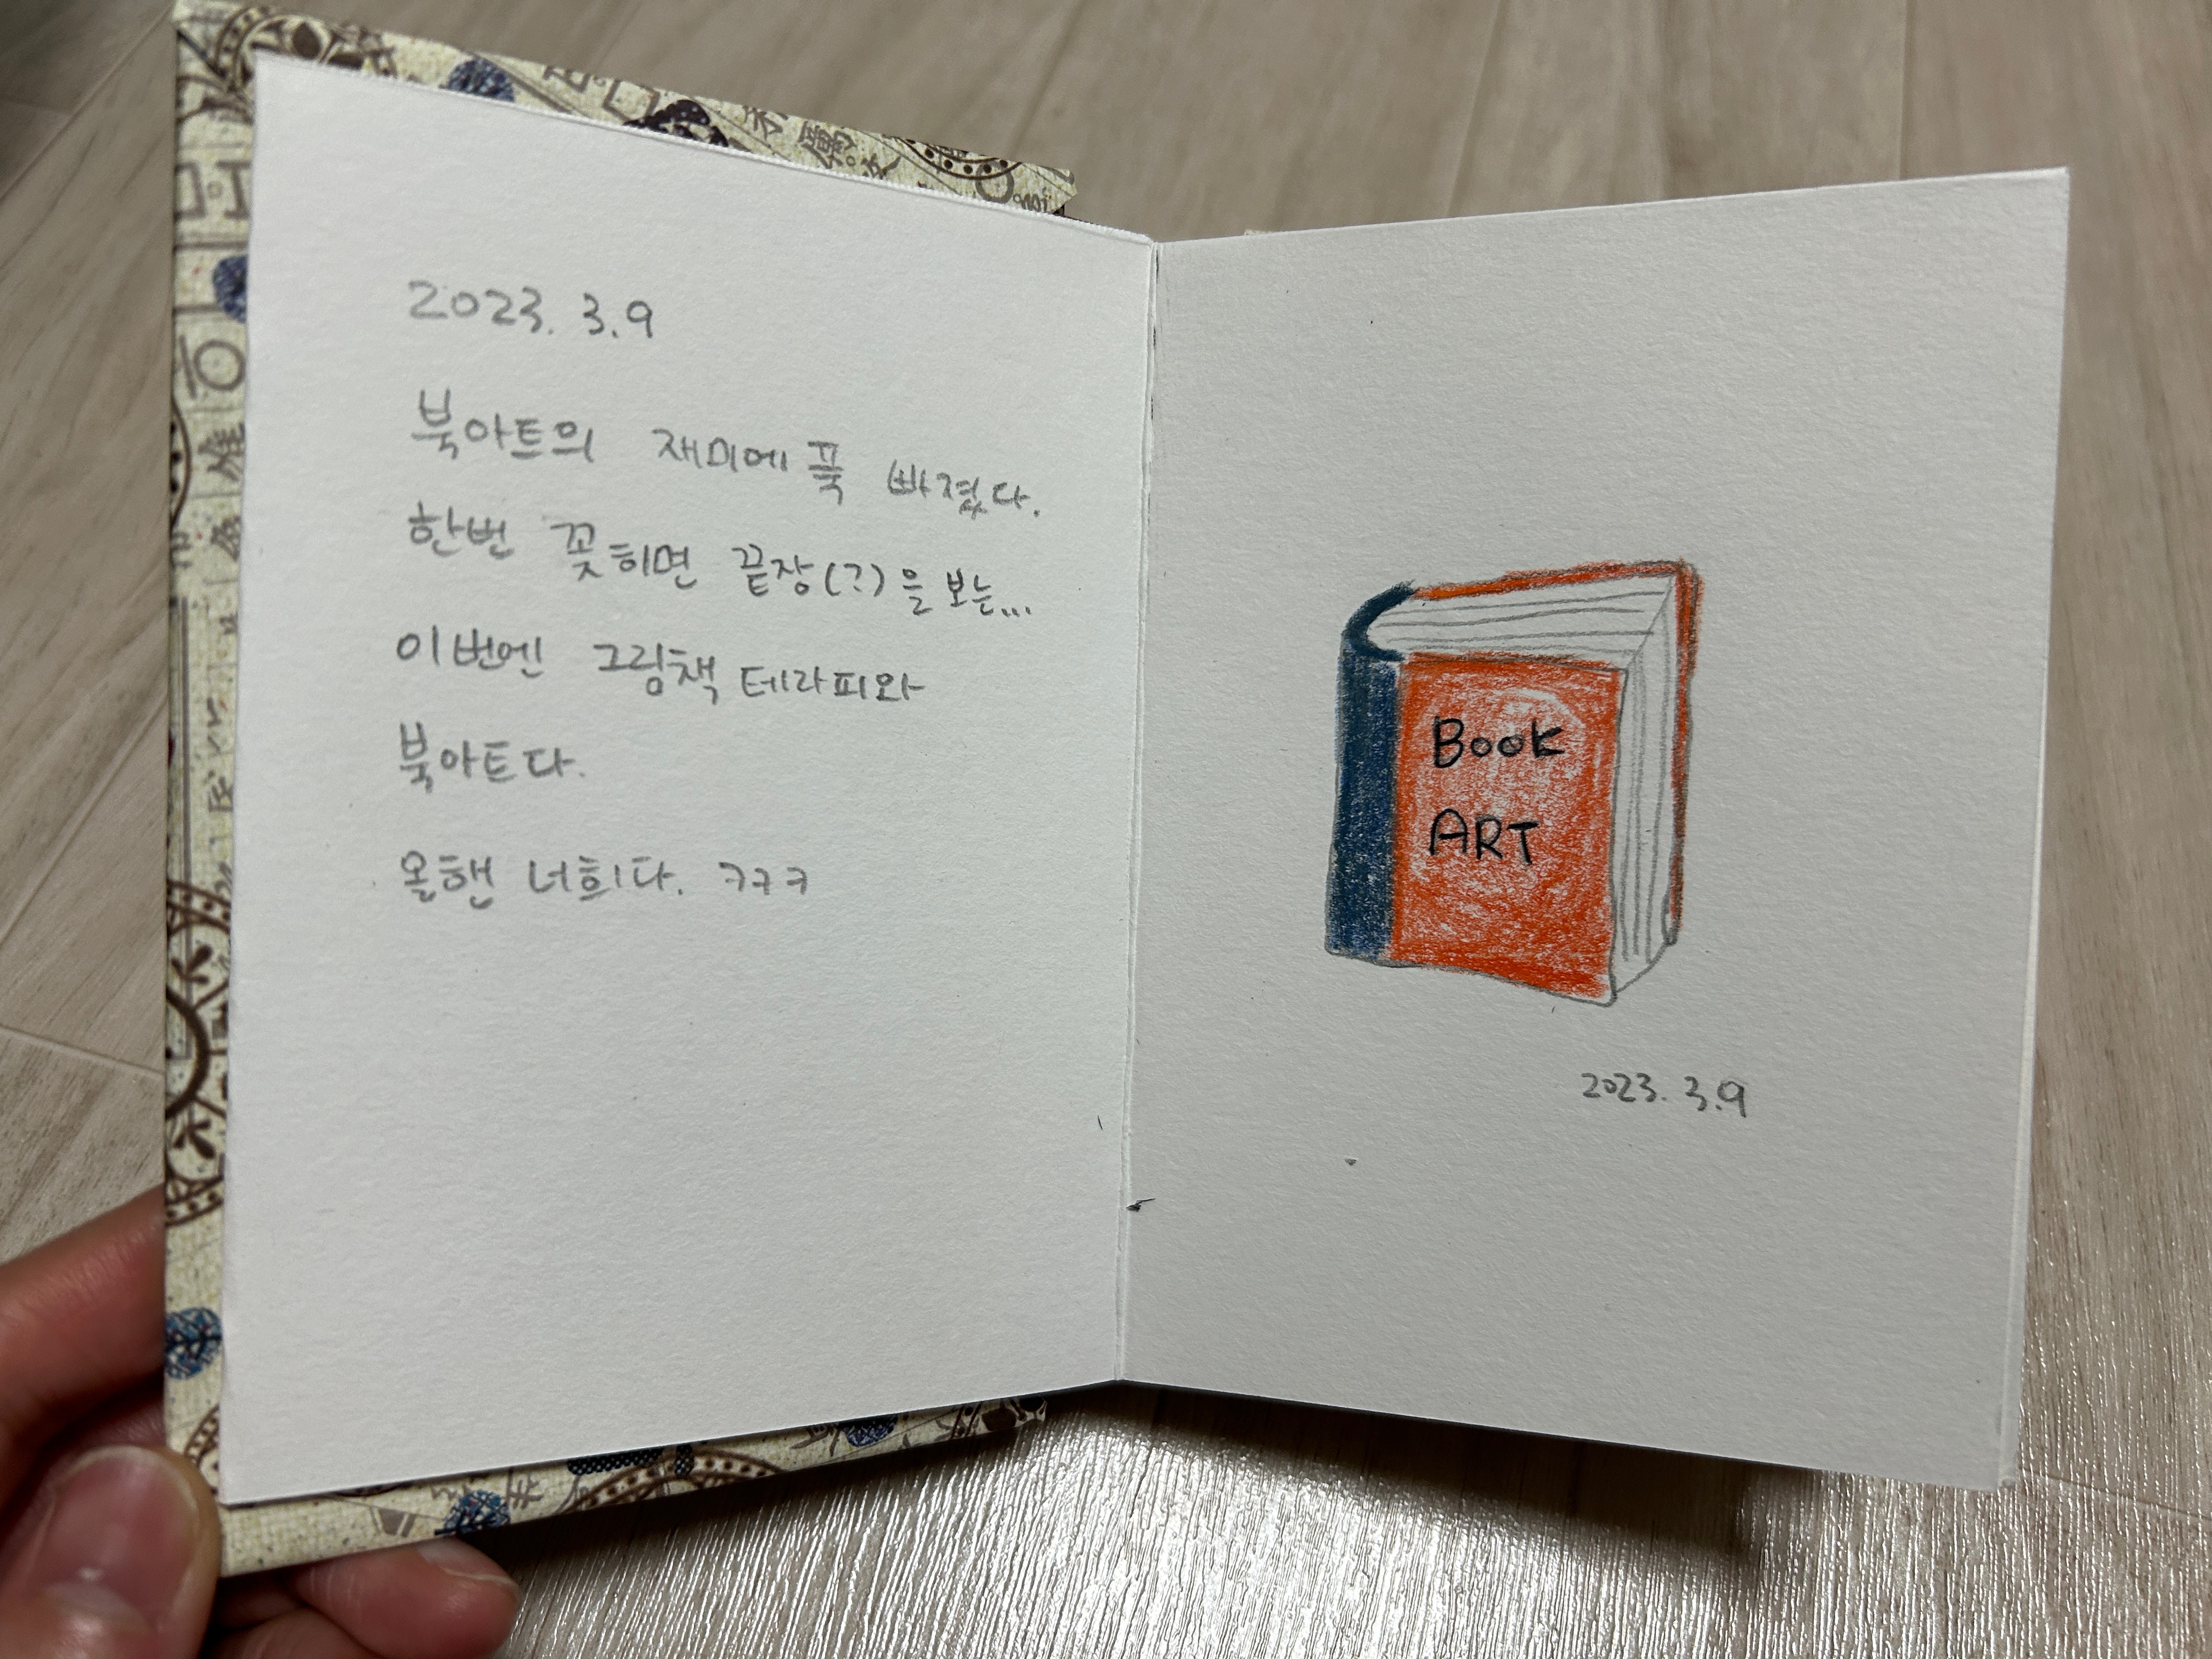 2023. 3.9
북아트의 재미에 푹 빠졌다.
한번 꽂히면 끝장(?)을 보는...
이번엔 그림책 테라피와
북아트다.
올핸 너희다. ㅋㅋㅋ
Book
ART
2023. 3.9